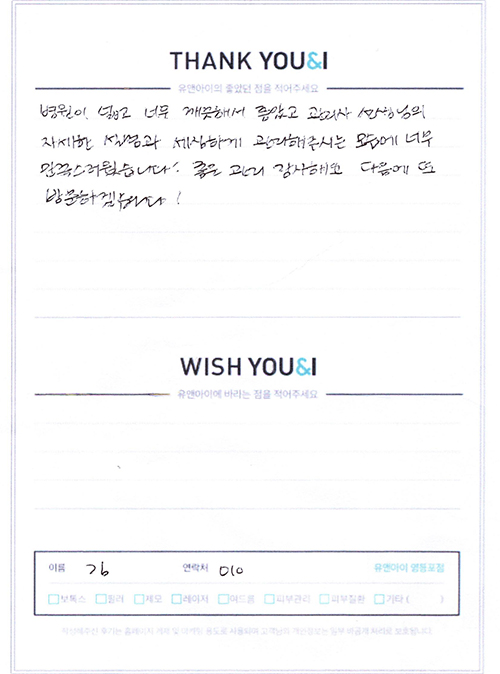 THANK YOU&I
유앤아이의 좋았던 점을 적어주세요
병원이 넓고 너무 깨끗해서 좋았고 관리사 선생님의
자세한 설명과 세심하게 관리해주시는 모습에 너무
만족스러웠습니다! 좋은 관리 감사해요 다음에 또
방문하겠습니다!
WISH YOU&I
유앤아이에 바라는 점을 적어주세요
이름 연락처 010 유앤아이 영등포점
보톡스 필러 제모 레이저 여드름 피부관리 피부질환 기타 ( )
작성해주신 후기는 홈페이지 게재 및 마케팅 용도로 사용되며 고객님의 개인정보는 일부 비공개 처리로 보호됩니다